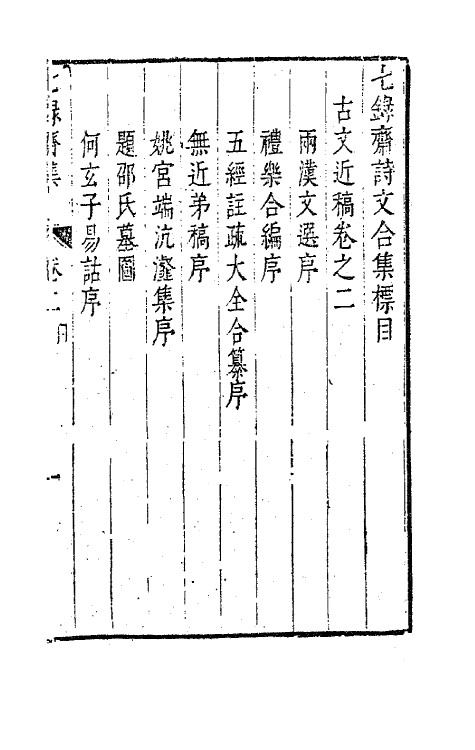 七錄齋詩文合集標目
古文近稿卷之二
兩漢文選序
禮樂合編序
五經註疏大全合纂序
無近弟稿序
姚宮端沆瀣集序
題邵氏墓圖
何玄子易詁序
七錄齋集 卷二 目 一